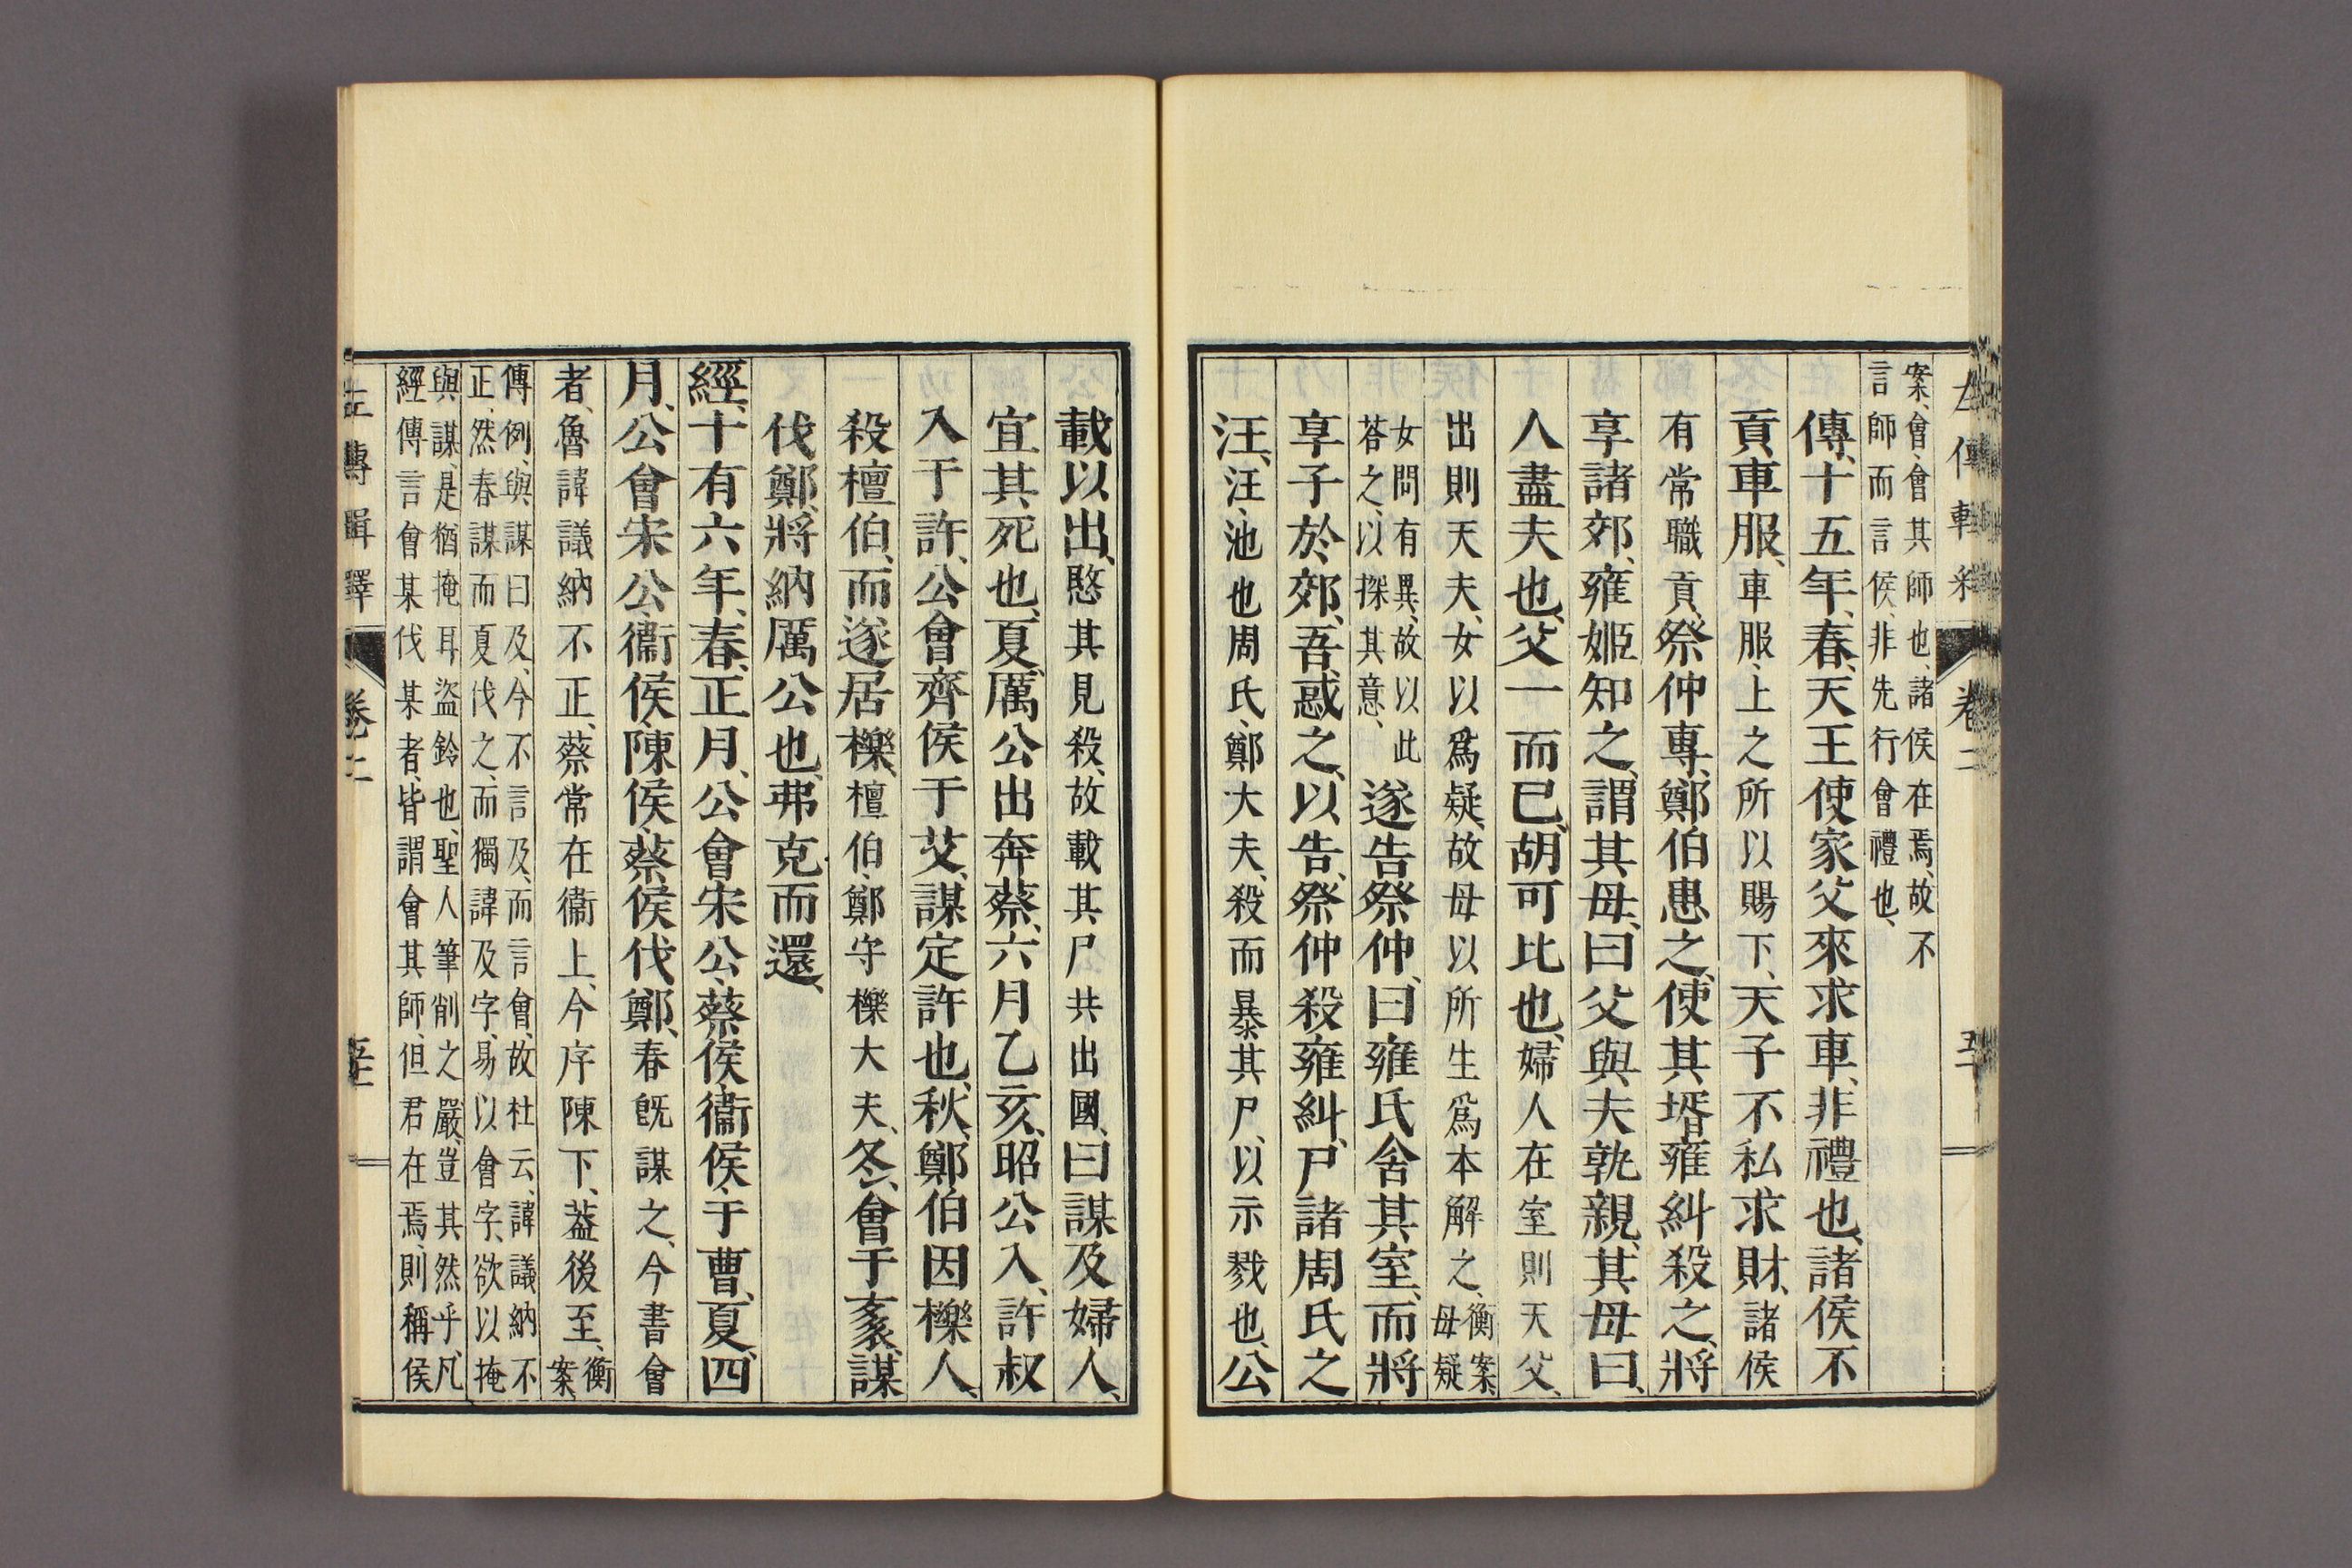 案、會、會其師也、諸侯在焉、故不
言師而言侯、非先行會禮也、
傳、十五年、春、天王使家父來求車、非禮也、諸侯不
貢車服、車服、上之所以賜下、天子不私求財、諸侯
有常職貢、祭仲專、鄭伯患之、使其壻雍糾殺之、將
享諸郊、雍姬知之、謂其母、曰父與夫孰親、其母曰、
人盡夫也、父一而已、胡可比也、婦人在室則天父、
出則天夫、女以爲疑、故母以所生爲本解之、衡案、母疑
女問有異、故以此荅之、以探其意、遂告祭仲、曰雍氏舍其室、而將
享子於郊、吾惑之、以告、祭仲殺雍糾、尸諸周氏之
汪、汪、池也周氏、鄭大夫、殺而暴其尸、以示戮也、公
載以出、愍其見殺、故載其尸共出國、曰謀及婦人、
宜其死也、夏、厲公出奔蔡、六月乙亥、昭公入、許叔
入于許、公會齊侯于艾、謀定許也、秋、鄭伯因櫟人、
殺檀伯、而遂居櫟、檀伯、鄭守櫟大夫、冬、會于袲、謀
伐鄭、將納厲公也、弗克而還、
經、十有六年、春、正月、公會宋公、蔡侯、衞侯、于曹、夏、四
月、公會宋公、衞侯、陳侯、蔡侯伐鄭、春旣謀之、今書會
者、魯諱議納不正、蔡常在衞上、今序陳下、葢後至、衡案、
傳例、與謀曰及、今不言及、而言會、故杜云、諱議納不
正、然春謀而夏伐之、而獨諱及字、易以會字、欲以掩
與謀、是猶掩耳盜鈴也、聖人筆削之嚴、豈其然乎、凡
經傳言會某伐某者、皆謂會其師、但君在焉、則稱侯
左傳輯釋
卷二